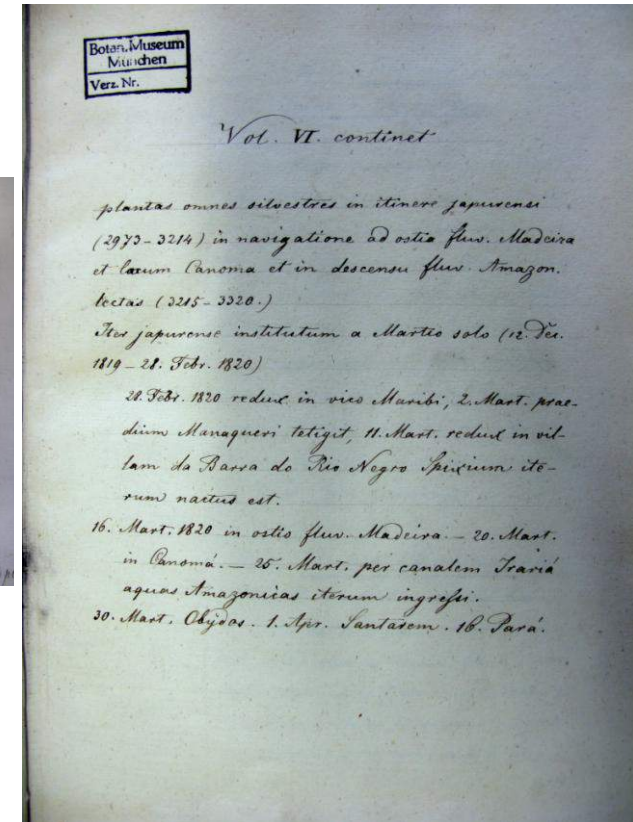 Botan. Museum
München
Verz. Nr.
Vol. VI. continet
plantas omnes silvestres in itinere japurensi
(2973-3214) in navigatione ad ostia fluv. Madeira
et lacum Canoma et in descensu fluv. Amazon.
lectas (3215-3320.)
Iter japurense institutum a Martio solo (12. Dec.
1819 - 28. Febr. 1820)
28. Febr. 1820 redux in vico Maribi, 2. Mart. prae-
dium Manaqueri tetigit, 11. Mart. redux in vil-
lam da Barra do Rio Negro Spixium ite-
rum nactus est.
16. Mart. 1820 in ostio fluv. Madeira. - 20. Mart.
in Canomá. - 25. Mart. per canalem Irariá
aquas Amazonicas iterum ingressi.
30. Mart. Obydos. 1. Apr. Santarem. 16. Pará.